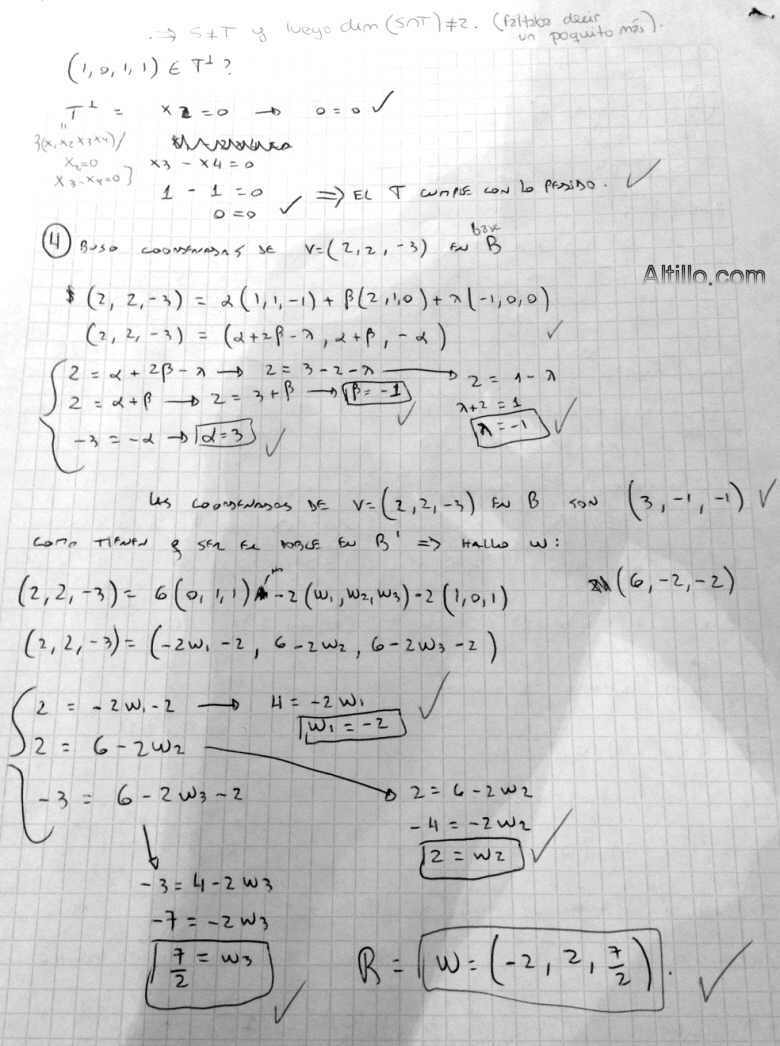 ∴ ⇒ S≠T y luego dim (S∩T)≠2. (faltaba decir
un poquito más).
(1, 0, 1, 1) ∈ T⊥ ?
T⊥ = x2 = 0 → 0 = 0 ✓
"
{(x1 x2 x3 x4)/
x2=0
x3-x4=0}
x3 - x4 = 0
1 - 1 = 0
0 = 0 ✓ ⇒ EL T CUMPLE CON LO PEDIDO. ✓
④ BUSO COORDENADAS DE V=(2, 2, -3) EN base B
Altillo.com
(2, 2, -3) = α(1, 1, -1) + β(2, 1, 0) + λ(-1, 0, 0)
(2, 2, -3) = (α+2β-λ, α+β, -α) ✓
2 = α + 2β - λ → 2 = 3 - 2 - λ → 2 = 1 - λ
2 = α+β → 2 = 3 + β → β = -1 ✓
λ+2 = 1
λ = -1 ✓
-3 = -α → α = 3 ✓
LAS COORDENADAS DE V=(2, 2, -3) EN B SON (3, -1, -1) ✓
COMO TIENEN q SER EL DOBLE EN B' ⇒ HALLO W:
(2, 2, -3) = 6(0, 1, 1) -2(W1, W2, W3) -2(1, 0, 1) (6, -2, -2)
(2, 2, -3) = (-2W1 -2, 6 -2W2, 6 -2W3 -2)
2 = -2W1 -2 → 4 = -2W1 ✓
W1 = -2
2 = 6 - 2W2
-3 = 6 - 2W3 - 2
2 = 6 - 2W2
-4 = -2W2
2 = W2 ✓
-3 = 4 - 2W3
-7 = -2W3
7/2 = W3 ✓
R = W = (-2, 2, 7/2). ✓